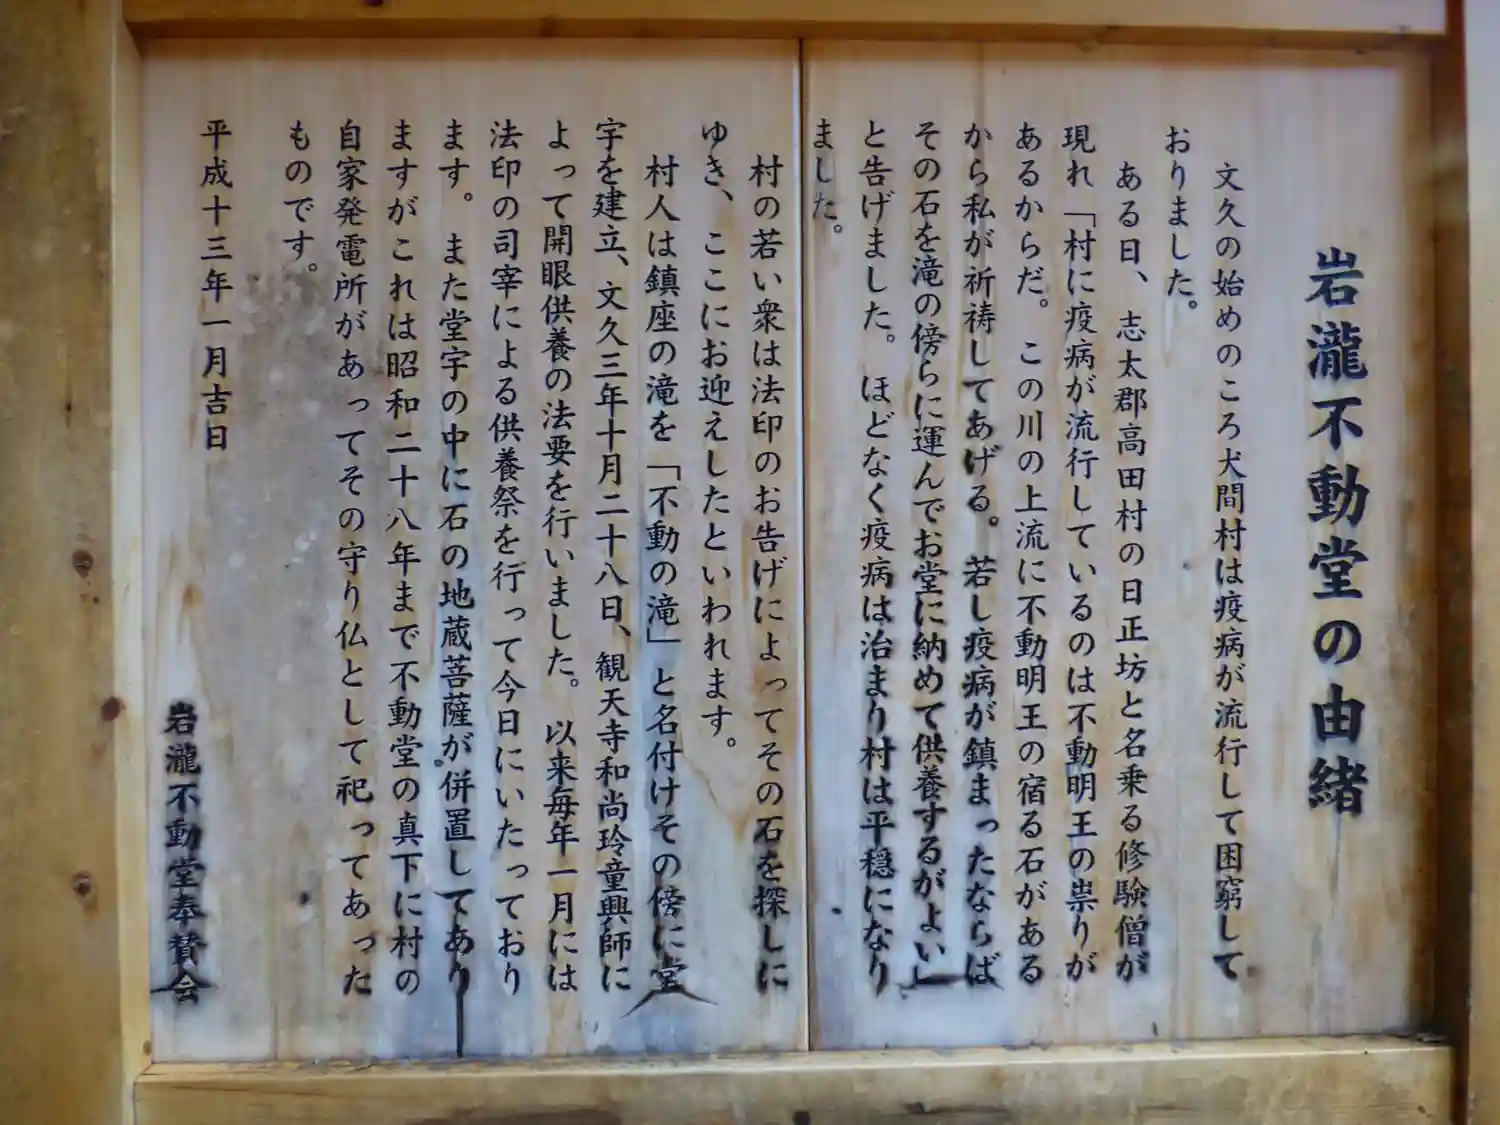 岩瀧不動堂の由緒
文久の始めのころ犬間村は疫病が流行して困窮して
おりました。
ある日、志太郡高田村の日正坊と名乗る修験僧が
現れ「村に疫病が流行しているのは不動明王の祟りが
あるからだ。この川の上流に不動明王の宿る石がある
から私が祈祷してあげる。若し疫病が鎮まったならば
その石を滝の傍らに運んでお堂に納めて供養するがよい」
と告げました。ほどなく疫病は治まり村は平穏になり
ました。
村の若い衆は法印のお告げによってその石を探しに
ゆき、ここにお迎えしたといわれます。
村人は鎮座の滝を「不動の滝」と名付けその傍に堂
宇を建立、文久三年十月二十八日、観天寺和尚玲童興師に
よって開眼供養の法要を行いました。以来毎年一月には
法印の司宰による供養祭を行って今日にいたっており
ます。また堂宇の中に石の地蔵菩薩が併置してあり
ますがこれは昭和二十八年まで不動堂の真下に村の
自家発電所があってその守り仏として祀ってあった
ものです。
平成十三年一月吉日
岩瀧不動堂奉賛会